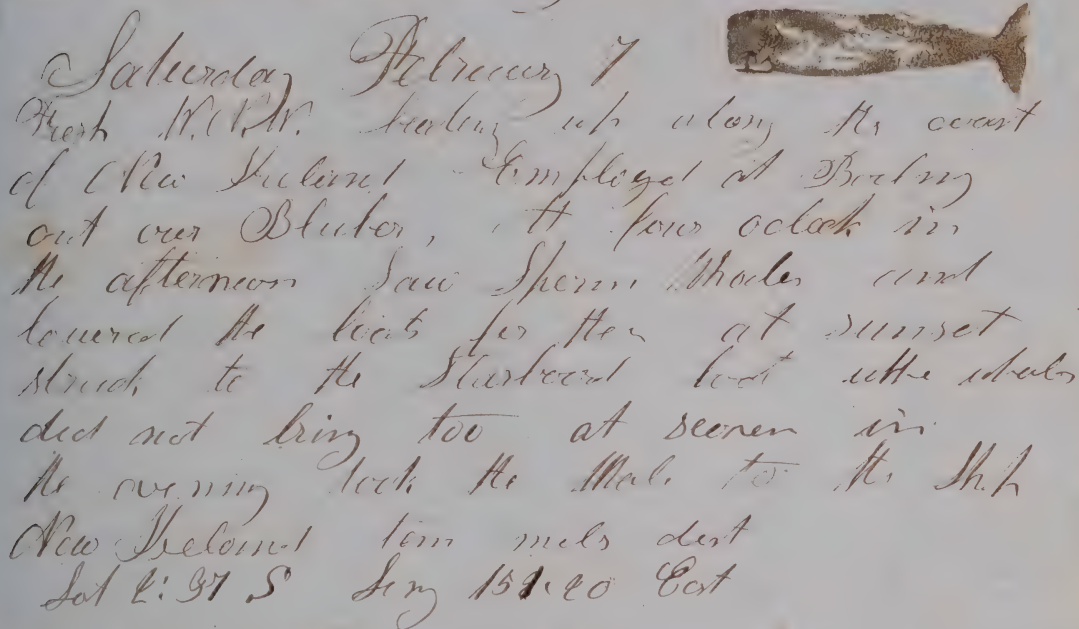 Saturday February 7
Fresh W.N.W. beating up along the coast
of New Ireland Employed at Boiling
out our Bluber, At four oclock in
the afternoon Saw Sperm Whales and
lowered the boats for them at sunset
struck to the Starboard boat the whales
did not bring too at seeven in
the evening took the Whale to the Ship
New Ireland mils dist
Lat 2:37 S Long 151.20 East